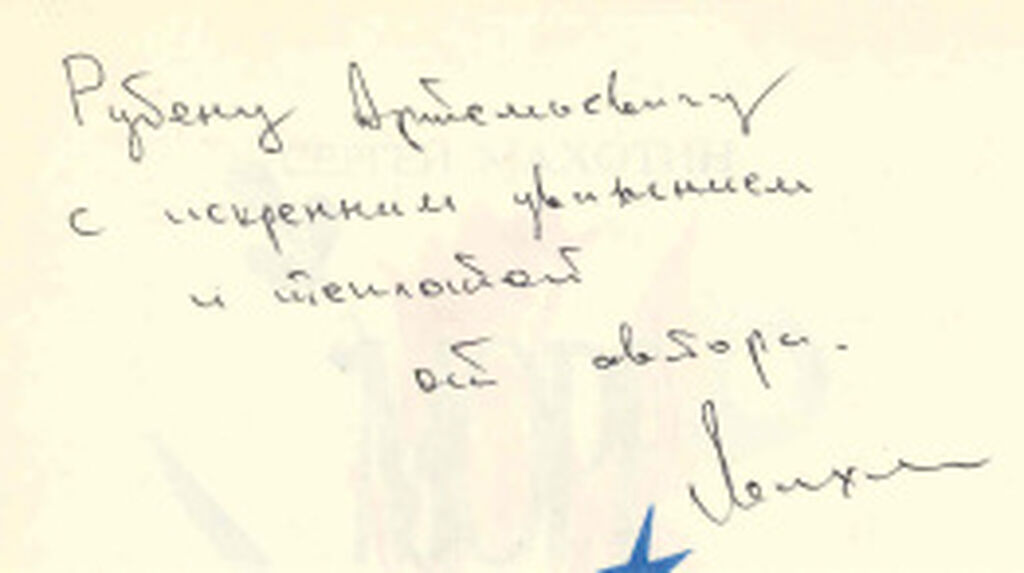 Рубену Артемьевичу
с искренним уважением
и теплотой
от автора.
СЕРГЕЙ МАХОТИН